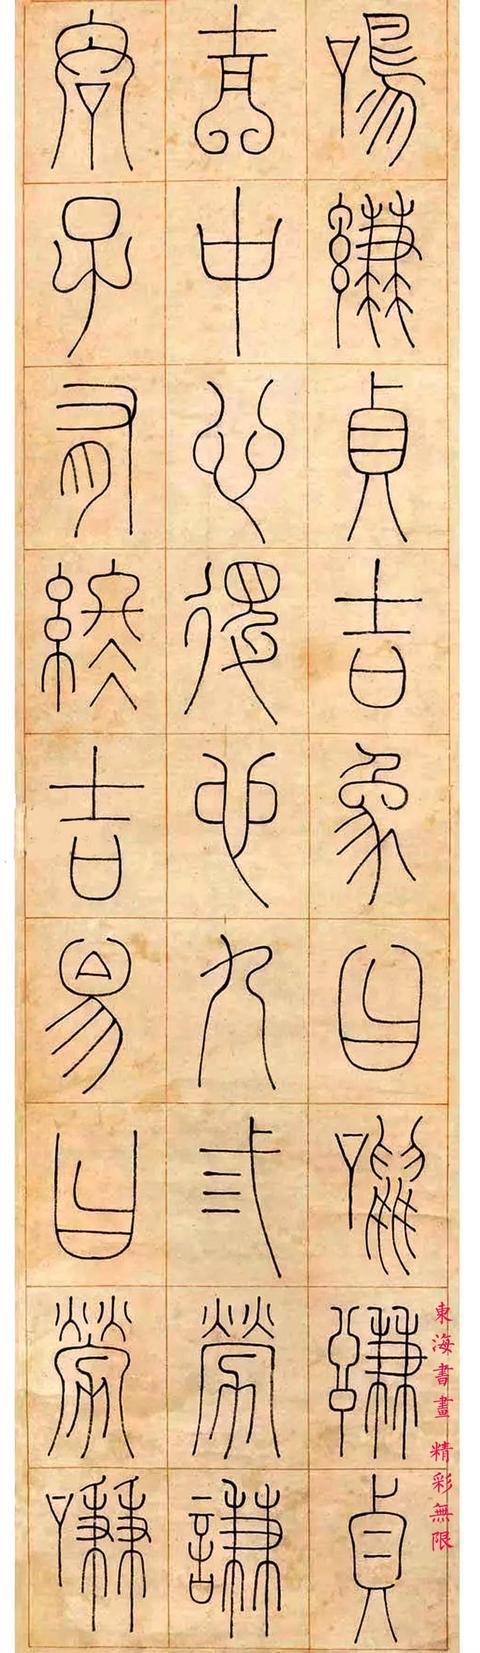 鳴謙貞吉象曰鳴謙貞
吉中心得也九三勞謙
君子有終吉象曰勞謙
東海書畫 精彩無限